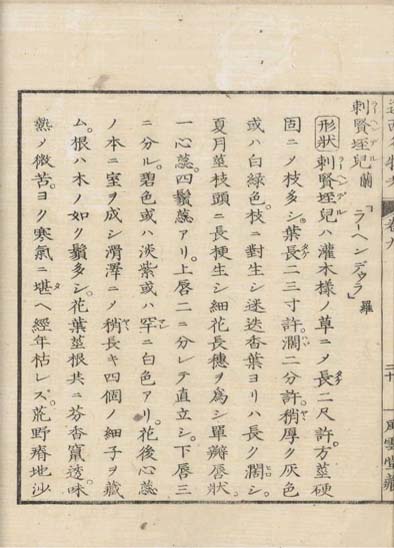 刺賢垤兒 ラーヘンデル 蘭 「ラーヘンデウラ」 羅
形狀 刺賢垤兒ハ灌木樣ノ草ニメ長二尺許。方莖硬
固ニメ枝多シ。葉長二三寸許。濶二分許。稍厚ク灰色
或ハ白綠色。枝ニ對生シ迷迭香葉ヨリハ長ク濶シ。
夏月莖枝頭ニ長梗生シ細花長穗ヲ爲シ單瓣唇狀。
一心蕊。四鬚蕊アリ。上唇二ニ分レテ直立シ。下唇三
ニ分ル。碧色或ハ淡紫或ハ罕ニ白色アリ。花後心蕊
ノ本ニ室ヲ成シ滑澤ニメ稍長キ四個ノ細子ヲ藏
ム。根ハ木ノ如ク鬚多シ。花葉莖根共ニ芬香竄透。味
熱メ微苦。ヨク寒氣ニ堪ヘ經年枯レス。荒野瘠地沙